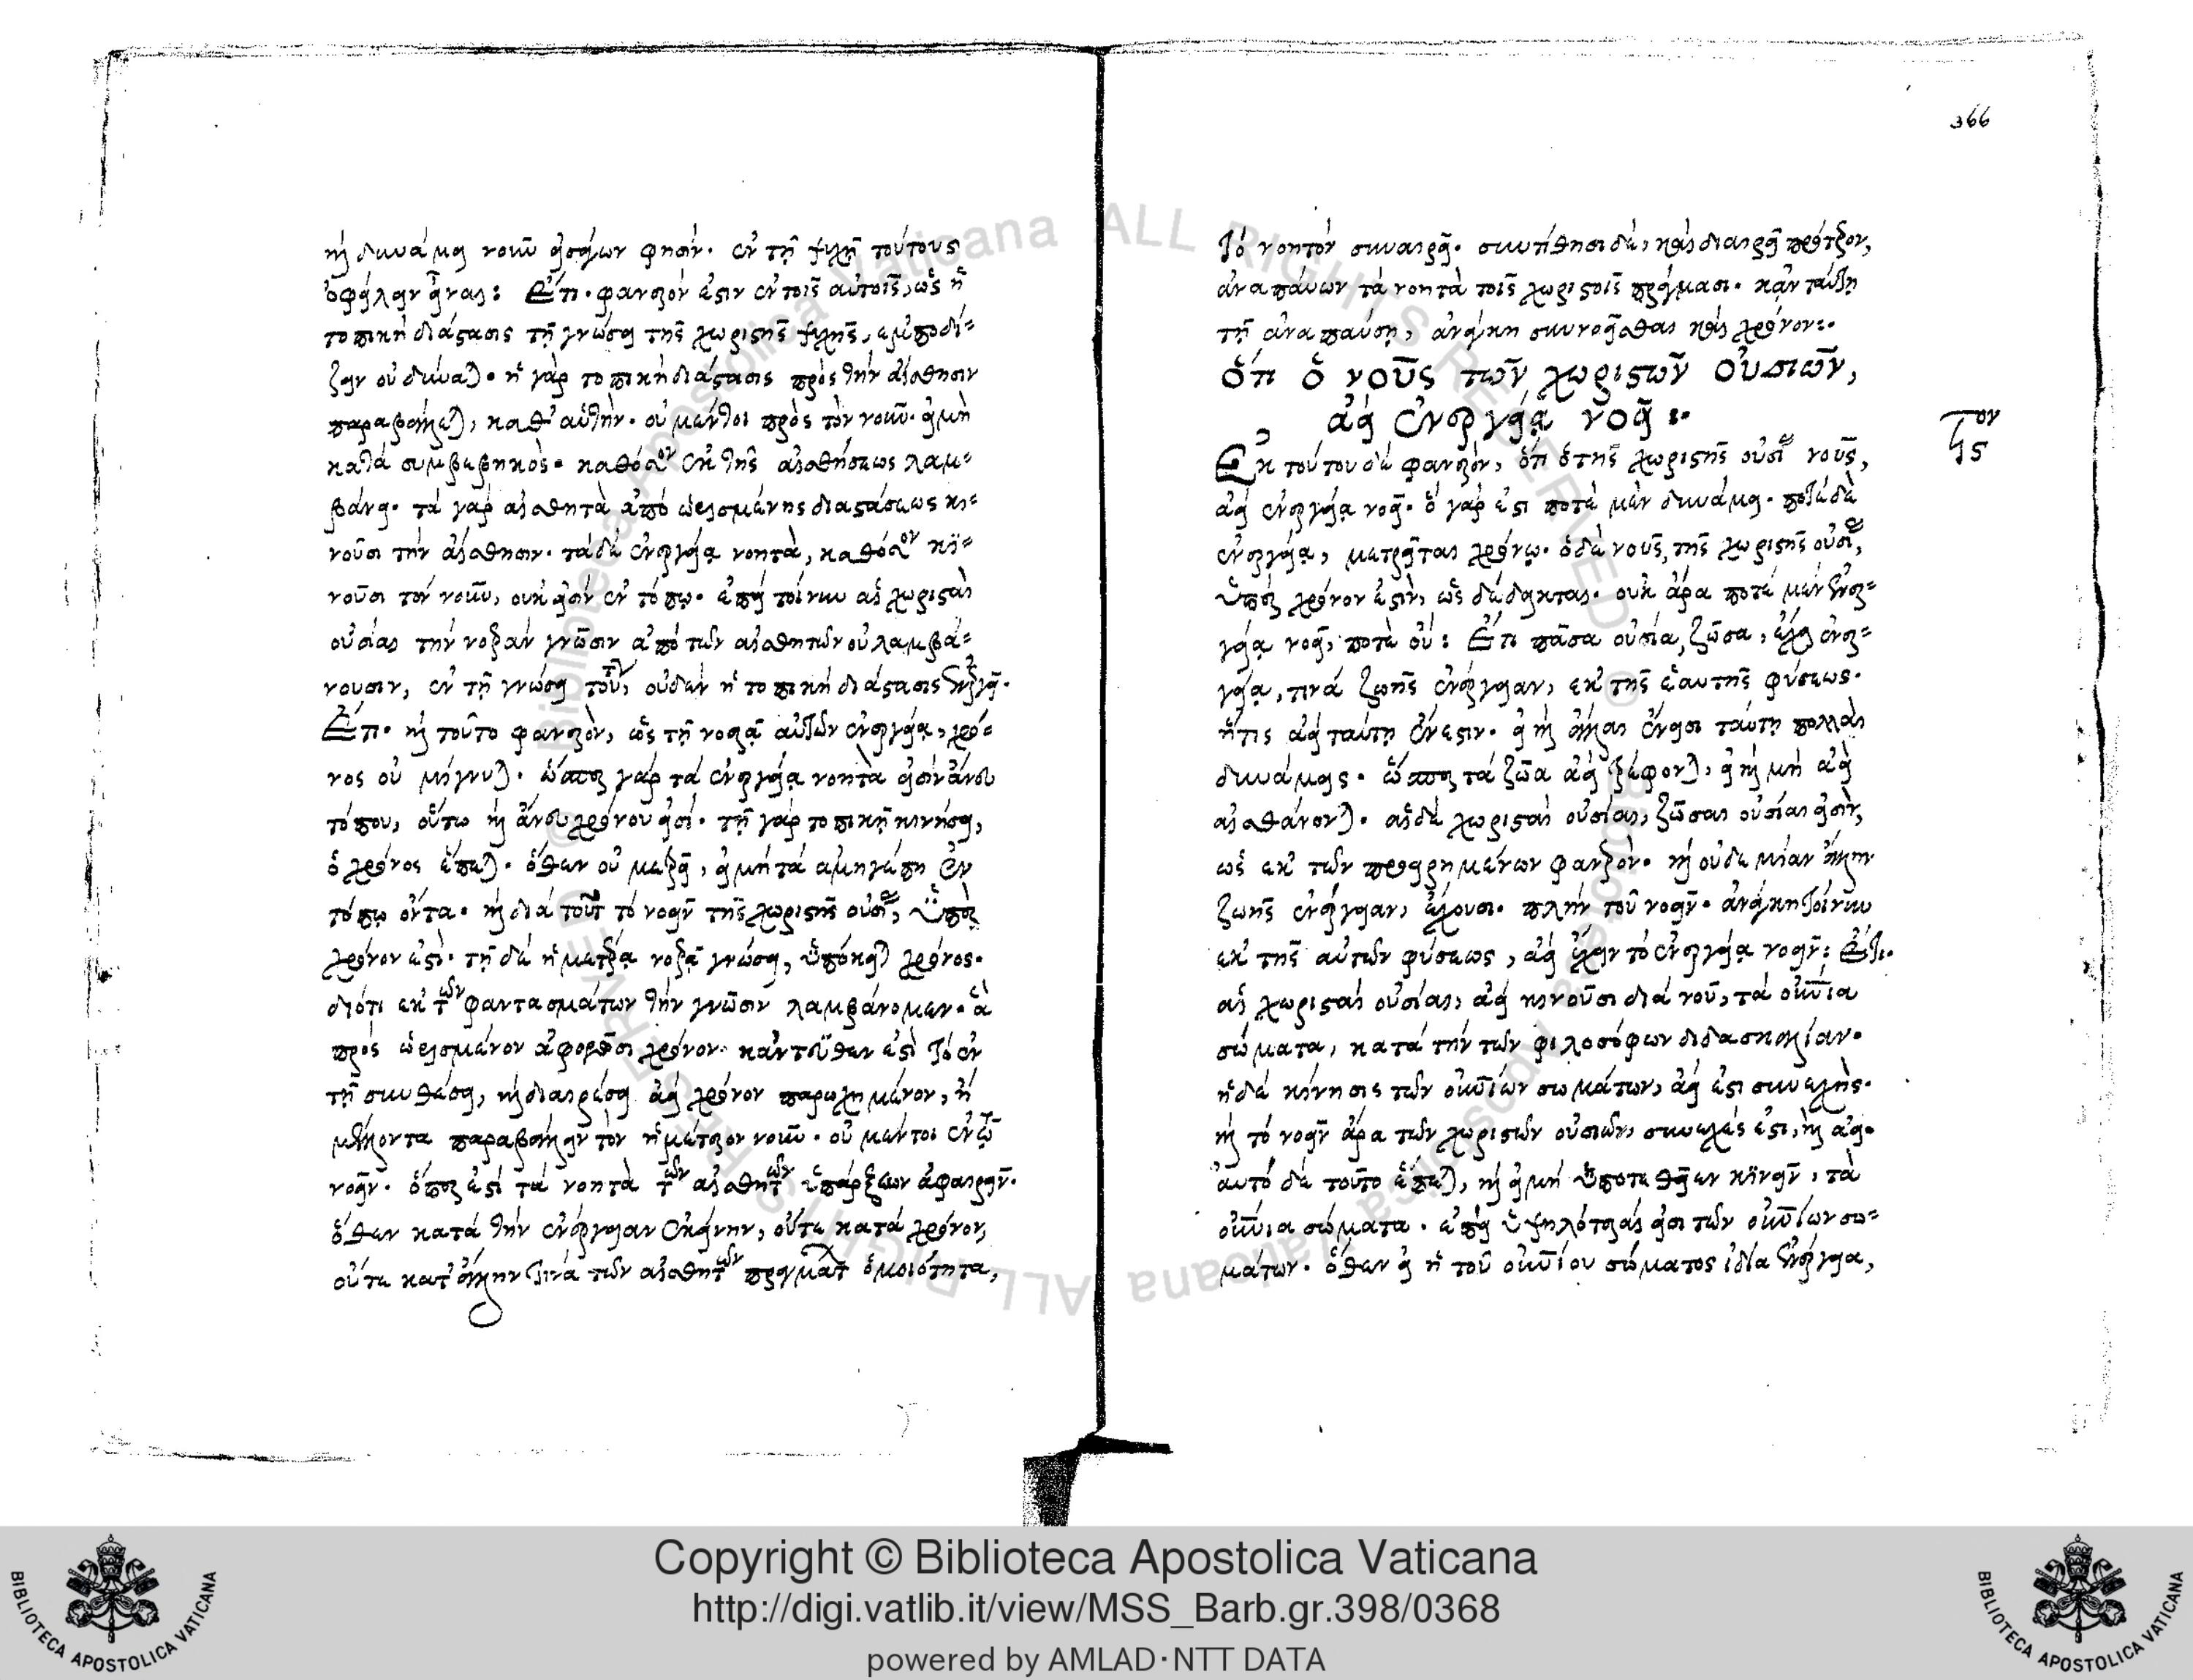 καὶ δυνάμει νοῦν εἰσήγων φησὶν. ἐν τῇ ψυχῇ τούτους
ὀφείλειν εἶναι: Ἔτι. φανερόν ἐστιν ἐν τοῖς αὐτοῖς, ὡς ἡ
τοπικὴ διάστασις τῇ γνώσει τῆς χωριστῆς ψυχῆς, ἐμποδί=
ζειν οὐ δύναται. ἡ γὰρ τοπικὴ διάστασις πρὸς τὴν αἴσθησιν
παραβάλλεται, καθ' αὑτήν. οὐ μέντοι πρὸς τὸν νοῦν. εἰμὴ
κατὰ συμβεβηκὸς. καθόσον ἐκ τῆς αἰσθήσεως λαμ=
βάνει. τὰ γὰρ αἰσθητὰ ἀπὸ ὡρισμένης διαστάσεως κι=
νοῦσι τὴν αἴσθησιν. τὰ δὲ ἐνεργείᾳ νοητὰ, καθόσον κι=
νοῦσι τὸν νοῦν, οὐκ εἰσὶν ἐν τόπῳ. ἐπεὶ τοίνυν αἱ χωρισταὶ
οὐσίαι τὴν νοερὰν γνῶσιν ἀπὸ τῶν αἰσθητῶν οὐ λαμβά=
νουσιν, ἐν τῇ γνώσει τούτων, οὐδὲν ἡ τοπικὴ διάστασις ἐνεργεῖ.
Ἔτι. καὶ τοῦτο φανερὸν, ὡς τῇ νοερᾷ αὐτῶν ἐνεργείᾳ, χρό=
νος οὐ μίγνυται. ὥσπερ γὰρ τὰ ἐνεργείᾳ νοητὰ εἰσὶν ἄνευ
τόπου, οὕτω καὶ ἄνευ χρόνου εἰσί. τῇ γὰρ τοπικῇ κινήσει,
ὁ χρόνος ἕπεται. ὅθεν οὐ μετρεῖ, εἰμὴ τὰ ἀμηγέπη ἐν
τόπῳ ὄντα. καὶ διὰ τοῦτο τὸ νοεῖν τῆς χωριστῆς οὐσίας, ὑπὲρ
χρόνον ἐστί. τῇ δὲ ἡμετέρᾳ νοερᾷ γνώσει, ὑπόκειται χρόνος.
διότι ἐκ τῶν φαντασμάτων τὴν γνῶσιν λαμβάνομεν. ἃ
πρὸς ὡρισμένον ἀφορῶσι χρόνον. κἀντεῦθεν ἐστὶ τὸ ἐν
τῇ συνθέσει, καὶ διαιρέσει ἀεὶ χρόνον παρῳχημένον, ἢ
μέλλοντα παραβάλλειν τὸν ἡμέτερον νοῦν. οὐ μέντοι ἐν τῷ
νοεῖν. ὅπερ ἐστὶ τὰ νοητὰ τῶν αἰσθητῶν ὑπάρξεων ἀφαιρεῖν.
ὅθεν κατὰ τὴν ἐνέργειαν ἐκείνην, οὔτε κατὰ χρόνον,
οὔτε κατ' ἄλλην τινὰ τῶν αἰσθητῶν πραγμάτων ὁμοιότητα,
366
τὸ νοητὸν συναιρεῖ. συντίθησι δὲ, καὶ διαιρεῖ πρότερον,
ἀναπαύων τὰ νοητὰ τοῖς χωριστοῖς πράγμασι. κἀν ταύτῃ
τῇ ἀναπαύσει, ἀνάγκη συννοεῖσθαι καὶ χρόνον:.
ὅτι ὁ νοῦς τῶν χωριστῶν οὐσιῶν,
ἀεὶ ἐνεργείᾳ νοεῖ:.
Ἐκ τούτου δὲ φανερὸν, ὅτι ὁ τῆς χωριστῆς οὐσίας νοῦς,
ἀεὶ ἐνεργείᾳ νοεῖ. ὃ γάρ ἐστι ποτὲ μὲν δυνάμει. ποτὲ δὲ
ἐνεργείᾳ, μετρεῖται χρόνῳ. ὁ δὲ νοῦς, τῆς χωριστῆς οὐσίας,
ὑπὲρ χρόνον ἐστὶν, ὡς δέδεικται. οὐκ ἄρα ποτὲ μὲν ἐνερ=
γείᾳ νοεῖ, ποτὲ οὔ: Ἔτι πᾶσα οὐσία, ζῶσα, ἔχει ἐνερ=
γείᾳ, τινὰ ζωῆς ἐνέργειαν, ἐκ τῆς ἑαυτῆς φύσεως.
ἥτις ἀεὶ ταύτῃ ἔνεστιν. εἰ καὶ ἄλλαι ἔνεισι ταύτῃ πολλαὶ
δυνάμεις. ὥσπερ τὰ ζῶα ἀεὶ τρέφονται, εἰ καὶ μὴ ἀεὶ
αἰσθάνονται. αἱ δὲ χωρισταὶ οὐσίαι, ζῶσαι οὐσίαι εἰσὶν,
ὡς ἐκ τῶν προειρημένων φανερόν. καὶ οὐδεμίαν ἄλλην
ζωῆς ἐνέργειαν, ἔχουσι. πλὴν τοῦ νοεῖν. ἀνάγκη τοίνυν
ἐκ τῆς αὐτῶν φύσεως, ἀεὶ ἔχειν τὸ ἐνεργείᾳ νοεῖν: Ἔτι.
αἱ χωρισταὶ οὐσίαι, ἀεὶ κινοῦσι διὰ νοῦ, τὰ οὐνια
σώματα, κατὰ τὴν τῶν φιλοσόφων διδασκαλίαν.
ἡ δὲ κίνησις τῶν οὐνίων σωμάτων, ἀεί ἐστι συνεχής.
καὶ τὸ νοεῖν ἄρα τῶν χωριστῶν οὐσιῶν, συνεχές ἐστι, καὶ ἀεί.
αὐτὸ δὲ τοῦτο ἕπεται, καὶ εἰ μὴ ὑποτεθεῖεν κινεῖν, τὰ
οὐνια σώματα. ἐπεὶ ὑψηλότεραί εἰσι τῶν οὐνίων σω=
μάτων. ὅθεν εἰ ἡ τοῦ οὐνίου σώματος ἰδία ἐνέργεια,